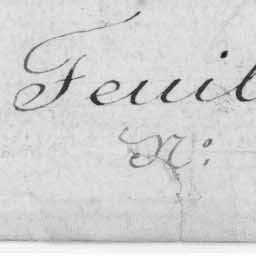 Feuil
N°: